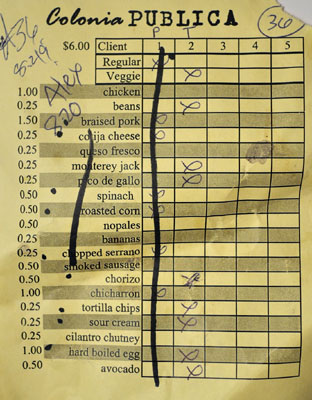 Colonia PUBLICA
36
A36
Alex
820
P T
$6.00 Client 1 2 3 4 5
Regular
Veggie
1.00 chicken
0.25 beans
1.50 braised pork
0.25 cotija cheese
0.25 queso fresco
0.25 monterey jack
0.25 pico de gallo
0.50 spinach
0.50 roasted corn
0.50 nopales
0.25 bananas
0.25 chopped serrano
0.50 smoked sausage
0.50 chorizo
1.00 chicharron
0.25 tortilla chips
0.25 sour cream
0.25 cilantro chutney
1.00 hard boiled egg
0.50 avocado